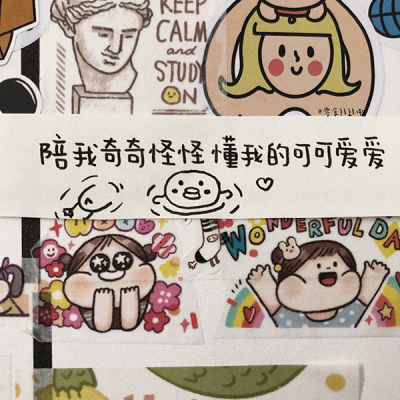 KEEP
CALM
and
STUDY
ON
陪我奇奇怪怪懂我的可可爱爱
WONDERFUL DA